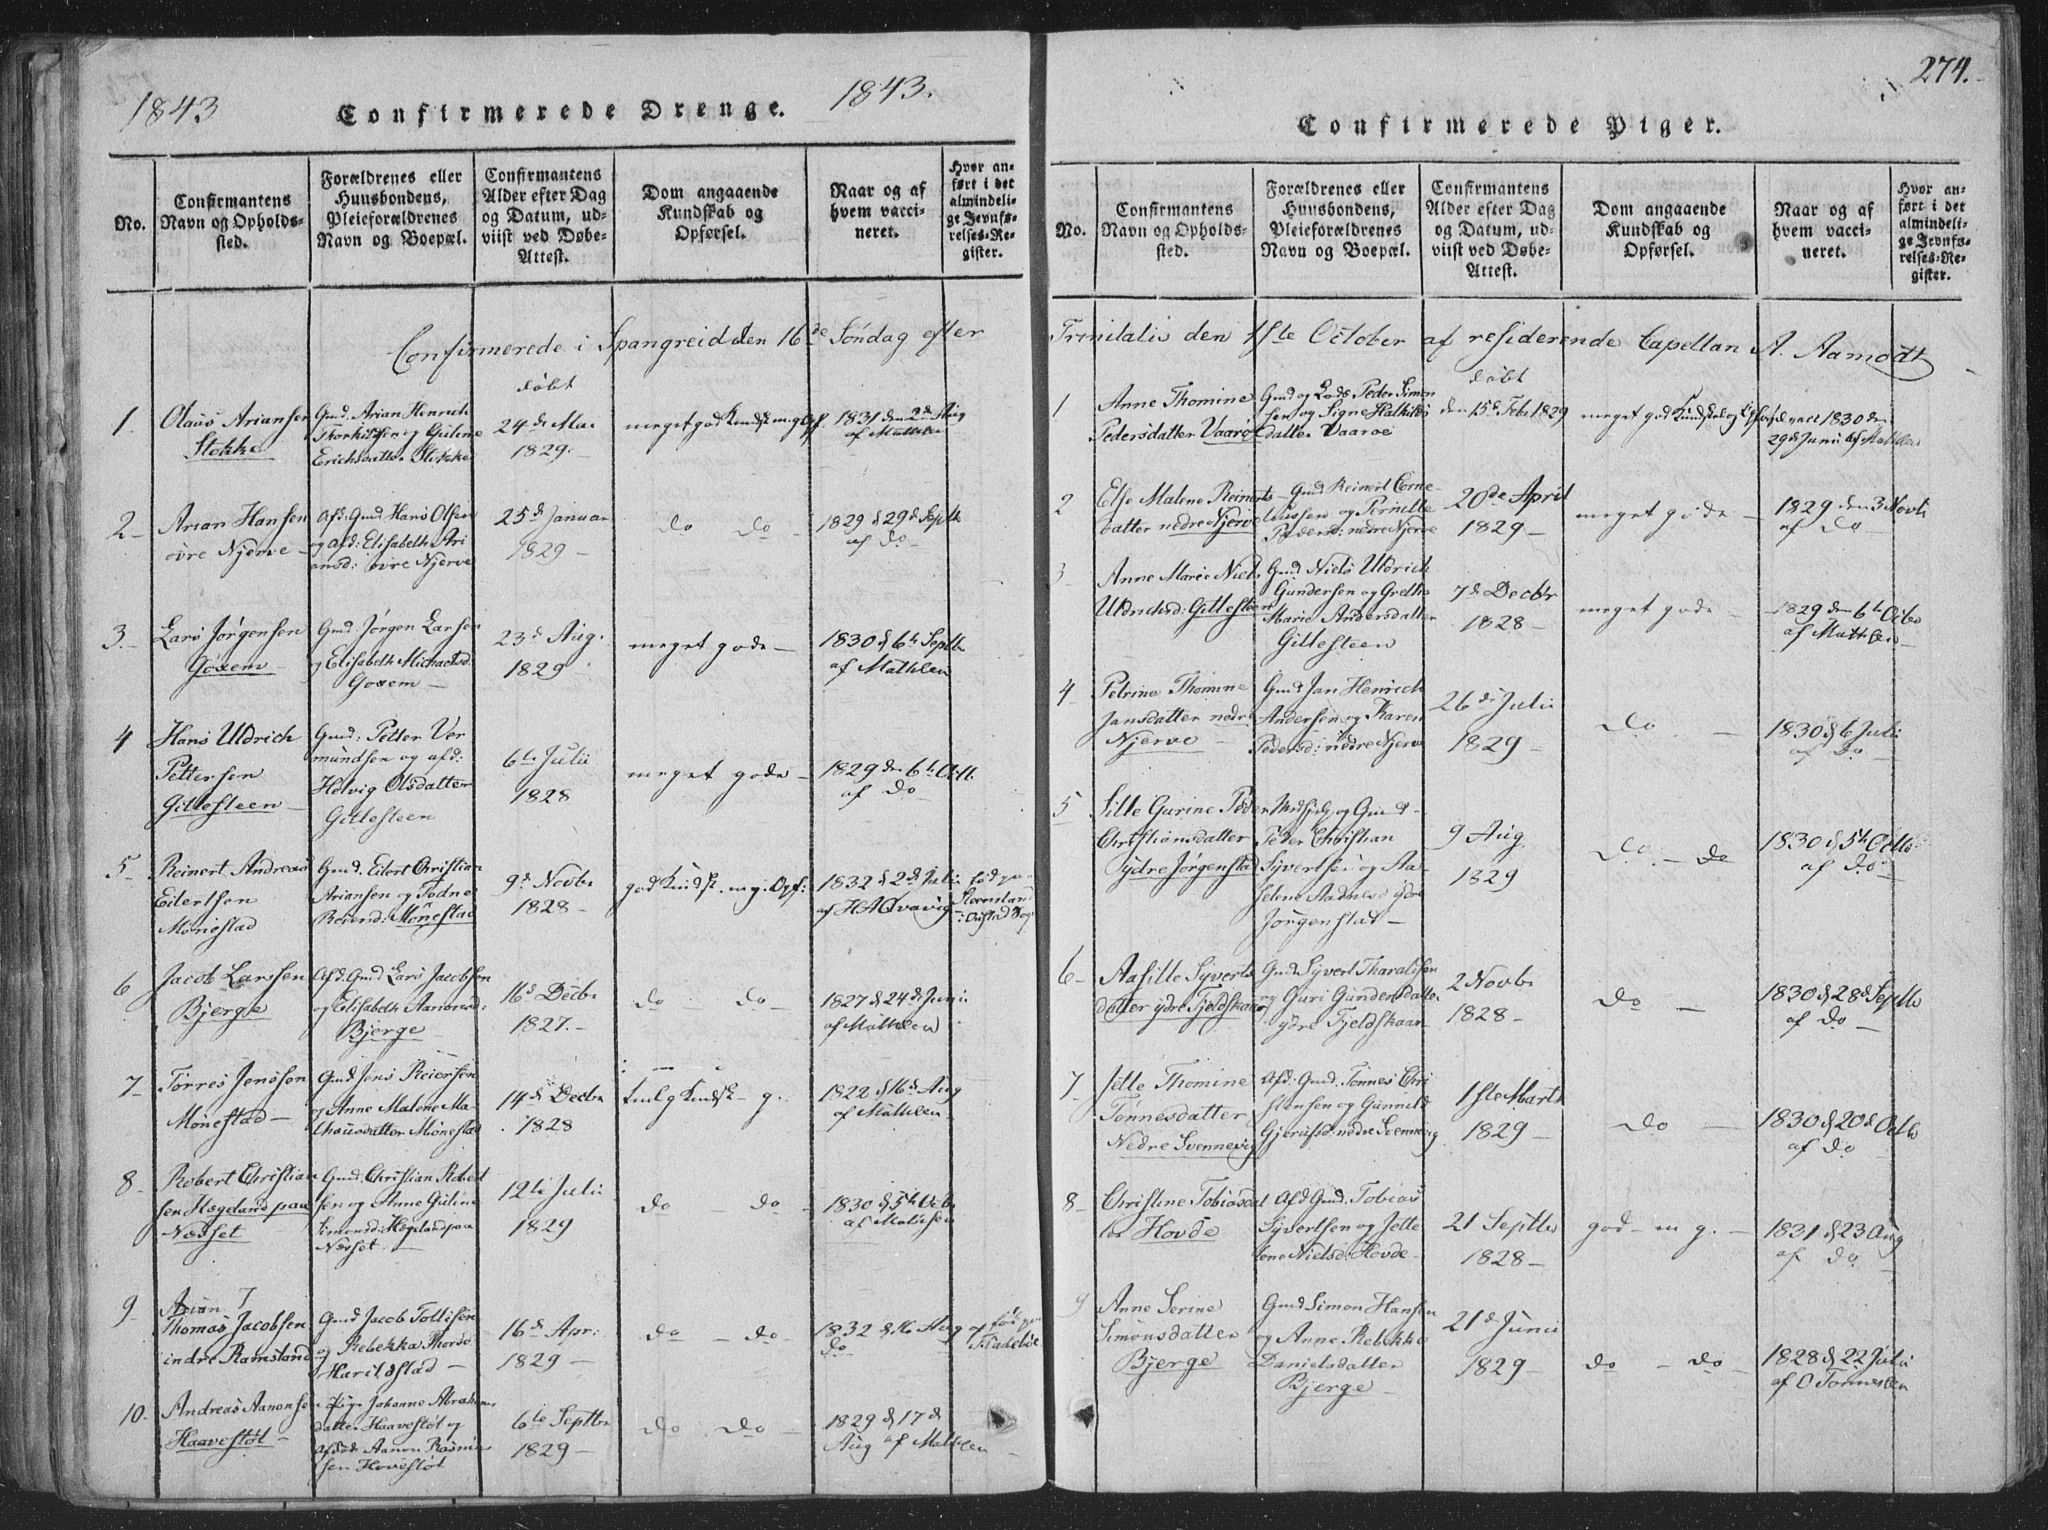 1843
Confirmerede Drenge.
1843.
No.
Confirmantens
Navn og Opholds-
sted.
Forældrenes eller
Huusbondens,
Pleieforældrenes
Navn og Boepæl.
Confirmantens
Alder efter Dag
og Datum, ud-
viist ved Døbe-
Attest.
Dom angaaende
Kundskab og
Opførsel.
Naar og af
hvem vacci-
neret.
Hvor an-
ført i det
almindeli-
ge Jevnfø-
relses-Re-
gister.
Confirmerede i Spangreid den 16de Søndag efter
døbt
1.
Olaus Ariansen
Stokke
Gmd: Arian Henrich
Thorkildsen og Guline
Erichsdatter Stokke
24de Mai
1829.
meget god Kundsk. m. g. Opf.
1831 den 2d Aug
af Mathlen
2
Arian Hansen
øvre Njerve
Afd: Gmd Hans Olsen
og Afd: Elisabeth Ari
ansd: øvre Njerve
25d Januar
1829
do do
1829 d 29d Septb
af do
3.
Lars Jørgensen
Gosem
Gmd Jørgen Larsen
og Elisabeth Michaelsd.
Gosem
23d Aug.
1829
meget gode
1830 d 6te Septb
af Mathlen
4
Hans Uldrich
Pettersen
Gillesteen
Gmd: Petter Ver
mundsen og afd:
Hedvig Olsdatter
Gillesteen
6te Julii
1828
meget gode
1829 den 6te Octb
af do
5
Reinert Andreas
Eilertsen
Mønestad
Gmd. Eilert Christian
Ariansen og Todne
Reiersd: Mønestad
9d Novbr
1828
god Kundsk. m. g. Opf:
1832 d 2d Julii
af HAQvavig
fød paa
6
Jacob Larssen
Bjerge
Afd. Gmd Lars Jacobsen
og Elisabeth Aanonsd:
Bjerge
16d Decbr
1827.
do do
1827 d 24d Junii
af Mathlen
7
Tørres Jenssen
Mønestad
Gmd Jens Reiersen
og Anne Malene Ma-
thæusdatter Mønestad
14d Decbr
1828
temlg Kundsk g.
1822 d 16d Aug
af Mathlen
8
Robert Christian
sen Hægland paa
Næsset
Gmd: Christian Robert
sen og Anne Guline
Simonsd: Hægland paa
Næsset.
12te Julii
1829
do do
1830 d 5te Octbr
af Mathlen
9
Arian T
Thomas Jacobsen
indre Ramsland
Gmd Jacob Tollisen
og Rebekka Thorsd
Harildstad
16d Apr:
1829
do do
1832 d 16 Aug af
do
fød paa
10.
Andreas Aanonsen
Haavestøl
Pige Johanne Abrahams
datter Haavestøl og
afdøde Aanon Rasmus
sen Hovestøl
6te Septbr
1829
do do
1829 d 17d
Aug af Mathlen
274.
Confirmerede Piger.
No.
Confirmantens
Navn og Opholds-
sted.
Forældrenes eller
Huusbondens,
Pleieforældrenes
Navn og Boepæl.
Confirmantens
Alder efter Dag
og Datum, ud-
viist ved Døbe-
Attest.
Dom angaaende
Kundskab og
Opførsel.
Naar og af
hvem vacci-
neret.
Hvor an-
ført i det
almindeli-
ge Jevnfø-
relses-Re-
gister.
Trinitatis den 1ste October af residerende Capellan A. Aamodt
døbt
1
Anne Thomine
Pedersdatter Vaarøe
Gmd og Lods Peder Simon
sen og Signe
datter Vaarøe
den 15d Feb 1829
meget god Kundskab og Opførsel
vacc 1830 den
29d Junii af Mathlen
2
Else Malene Reinerts
datter nedre Njerve
Gmd Reinert Corne-
liussen og Pernille
Pedersd: nedre Njerve
20de April
1829
meget gode
1829 den 3 Novb
af do
3
Anne Marie Niels
Uldrichsd: Gillesteen
Gmd Niels Uldrich
Gundersen og Grethe
Marie Andersdatter
Gillesteen
7d Decbr
1828
meget gode
1829 den 6te Octb
af Mathlen
4
Petrine Thomine
Jansdatter nedre
Njerve
Gmd Jan Henrich
Andersen og Karen
Pedersd: nedre Njerve
26d Julii
1829
do
1830 d 6 Julii
af do
5
Sille Gurine Peder
Christiansdatter
ydre Jørgenstad
Medhjelp. og Gmd
Peder Christian
Syvertsen og Aa-
selene Aadnesd ydre
Jørgenstad
9 Aug.
1829
do do
1830 d 5te Octb
af do
6
Aasille Syverts
datter ydre Fjeldskaar
Gmd Syvert Tharaldsen
og Guri Gundersdatter
ydre Fjeldskaar
2 Novbr
1828
do
1830 d 28d Septb
af do
7
Jelle Thomine
Tønnesdatter
Nedre Svennevig
Afd: Gmd. Tønnes Chri
stensen og Gunnild
Gjeruldsd: nedre Svennevig
1ste Marts
1829
do
1830 d 20d Octb
af do
8
Christine Tobiasdat
ter Hovde
Afd Gmd: Tobias
Syvertsen og Jette
lene Nielsd: Hovde
21 Septbr
1828
god m g.
1831 d 23 Aug
af do
9
Anne Serine
Simonsdatter
Bjerge
Gmd Simon Hansen
og Anne Rebekka
Danielsdatter
Bjerge
21d Junii
1829
do do
1828 d 22 Julii
af O Tønnesen